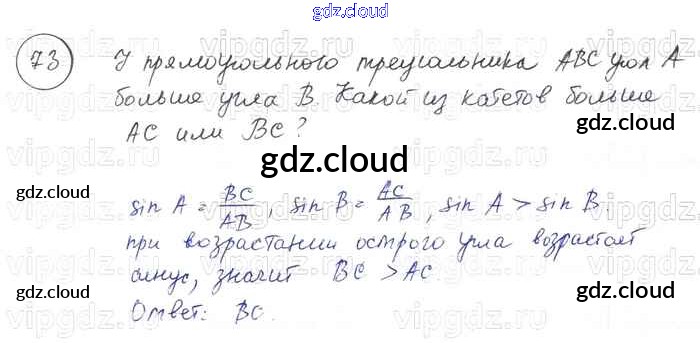 gdz.cloud
73 У прямоугольного треугольника ABC угол A
больше угла B. Какой из катетов больше
AC или BC?
gdz.cloud
gdz.cloud
gdz.cloud
sin A = BC/AB, sin B = AC/AB, sin A > sin B,
при возрастании острого угла возрастает
синус, значит BC > AC.
gdz.cloud
gdz.cloud
Ответ: BC.
gdz.cloud